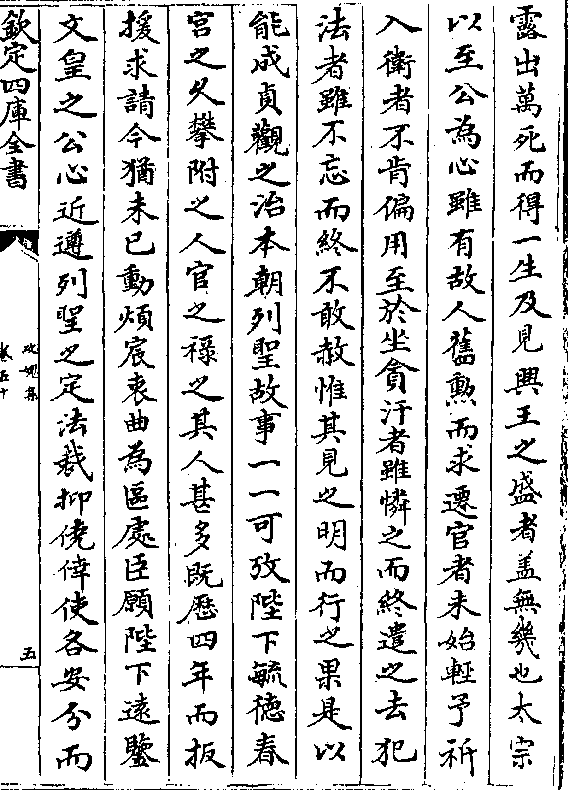 露出萬死而得一生及見興王之盛者盖無幾也太宗
以至公為心雖有故人舊勲而求遷官者未始輕予祈
入衛者不肯偏用至於坐貪汙者雖憐之而終遣之去犯
法者雖不忘而終不敢赦惟其見之明而行之果是以
能成貞觀之治本朝列聖故事一一可攷陛下毓徳春
宫之久攀附之人官之禄之其人甚多既歴四年而扳
援求請今猶未已動煩宸衷曲為區處臣願陛下逺鑒
文皇之公心近遵列聖之定法裁抑僥倖使各安分而
欽定四庫全書
攻媿集
卷五十
五